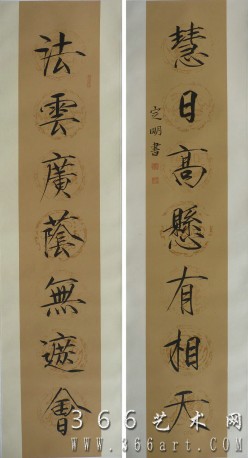 慧日高懸有相天
定明書
法雲廣蔭無遮會
366艺术网
www.366art.com